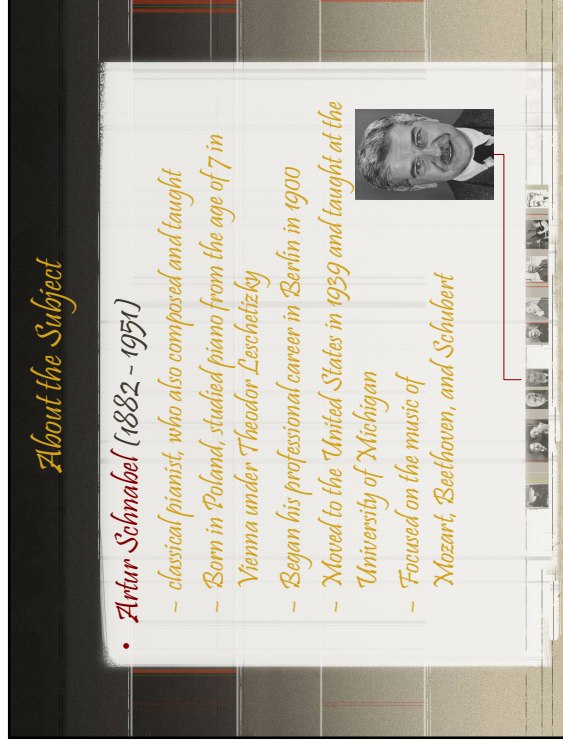 About the Subject
• Artur Schnabel (1882 - 1951)
– classical pianist, who also composed and taught
– Born in Poland, studied piano from the age of 7 in
Vienna under Theodor Leschetizky
– Began his professional career in Berlin in 1900
– Moved to the United States in 1939 and taught at the
University of Michigan
– Focused on the music of
Mozart, Beethoven, and Schubert